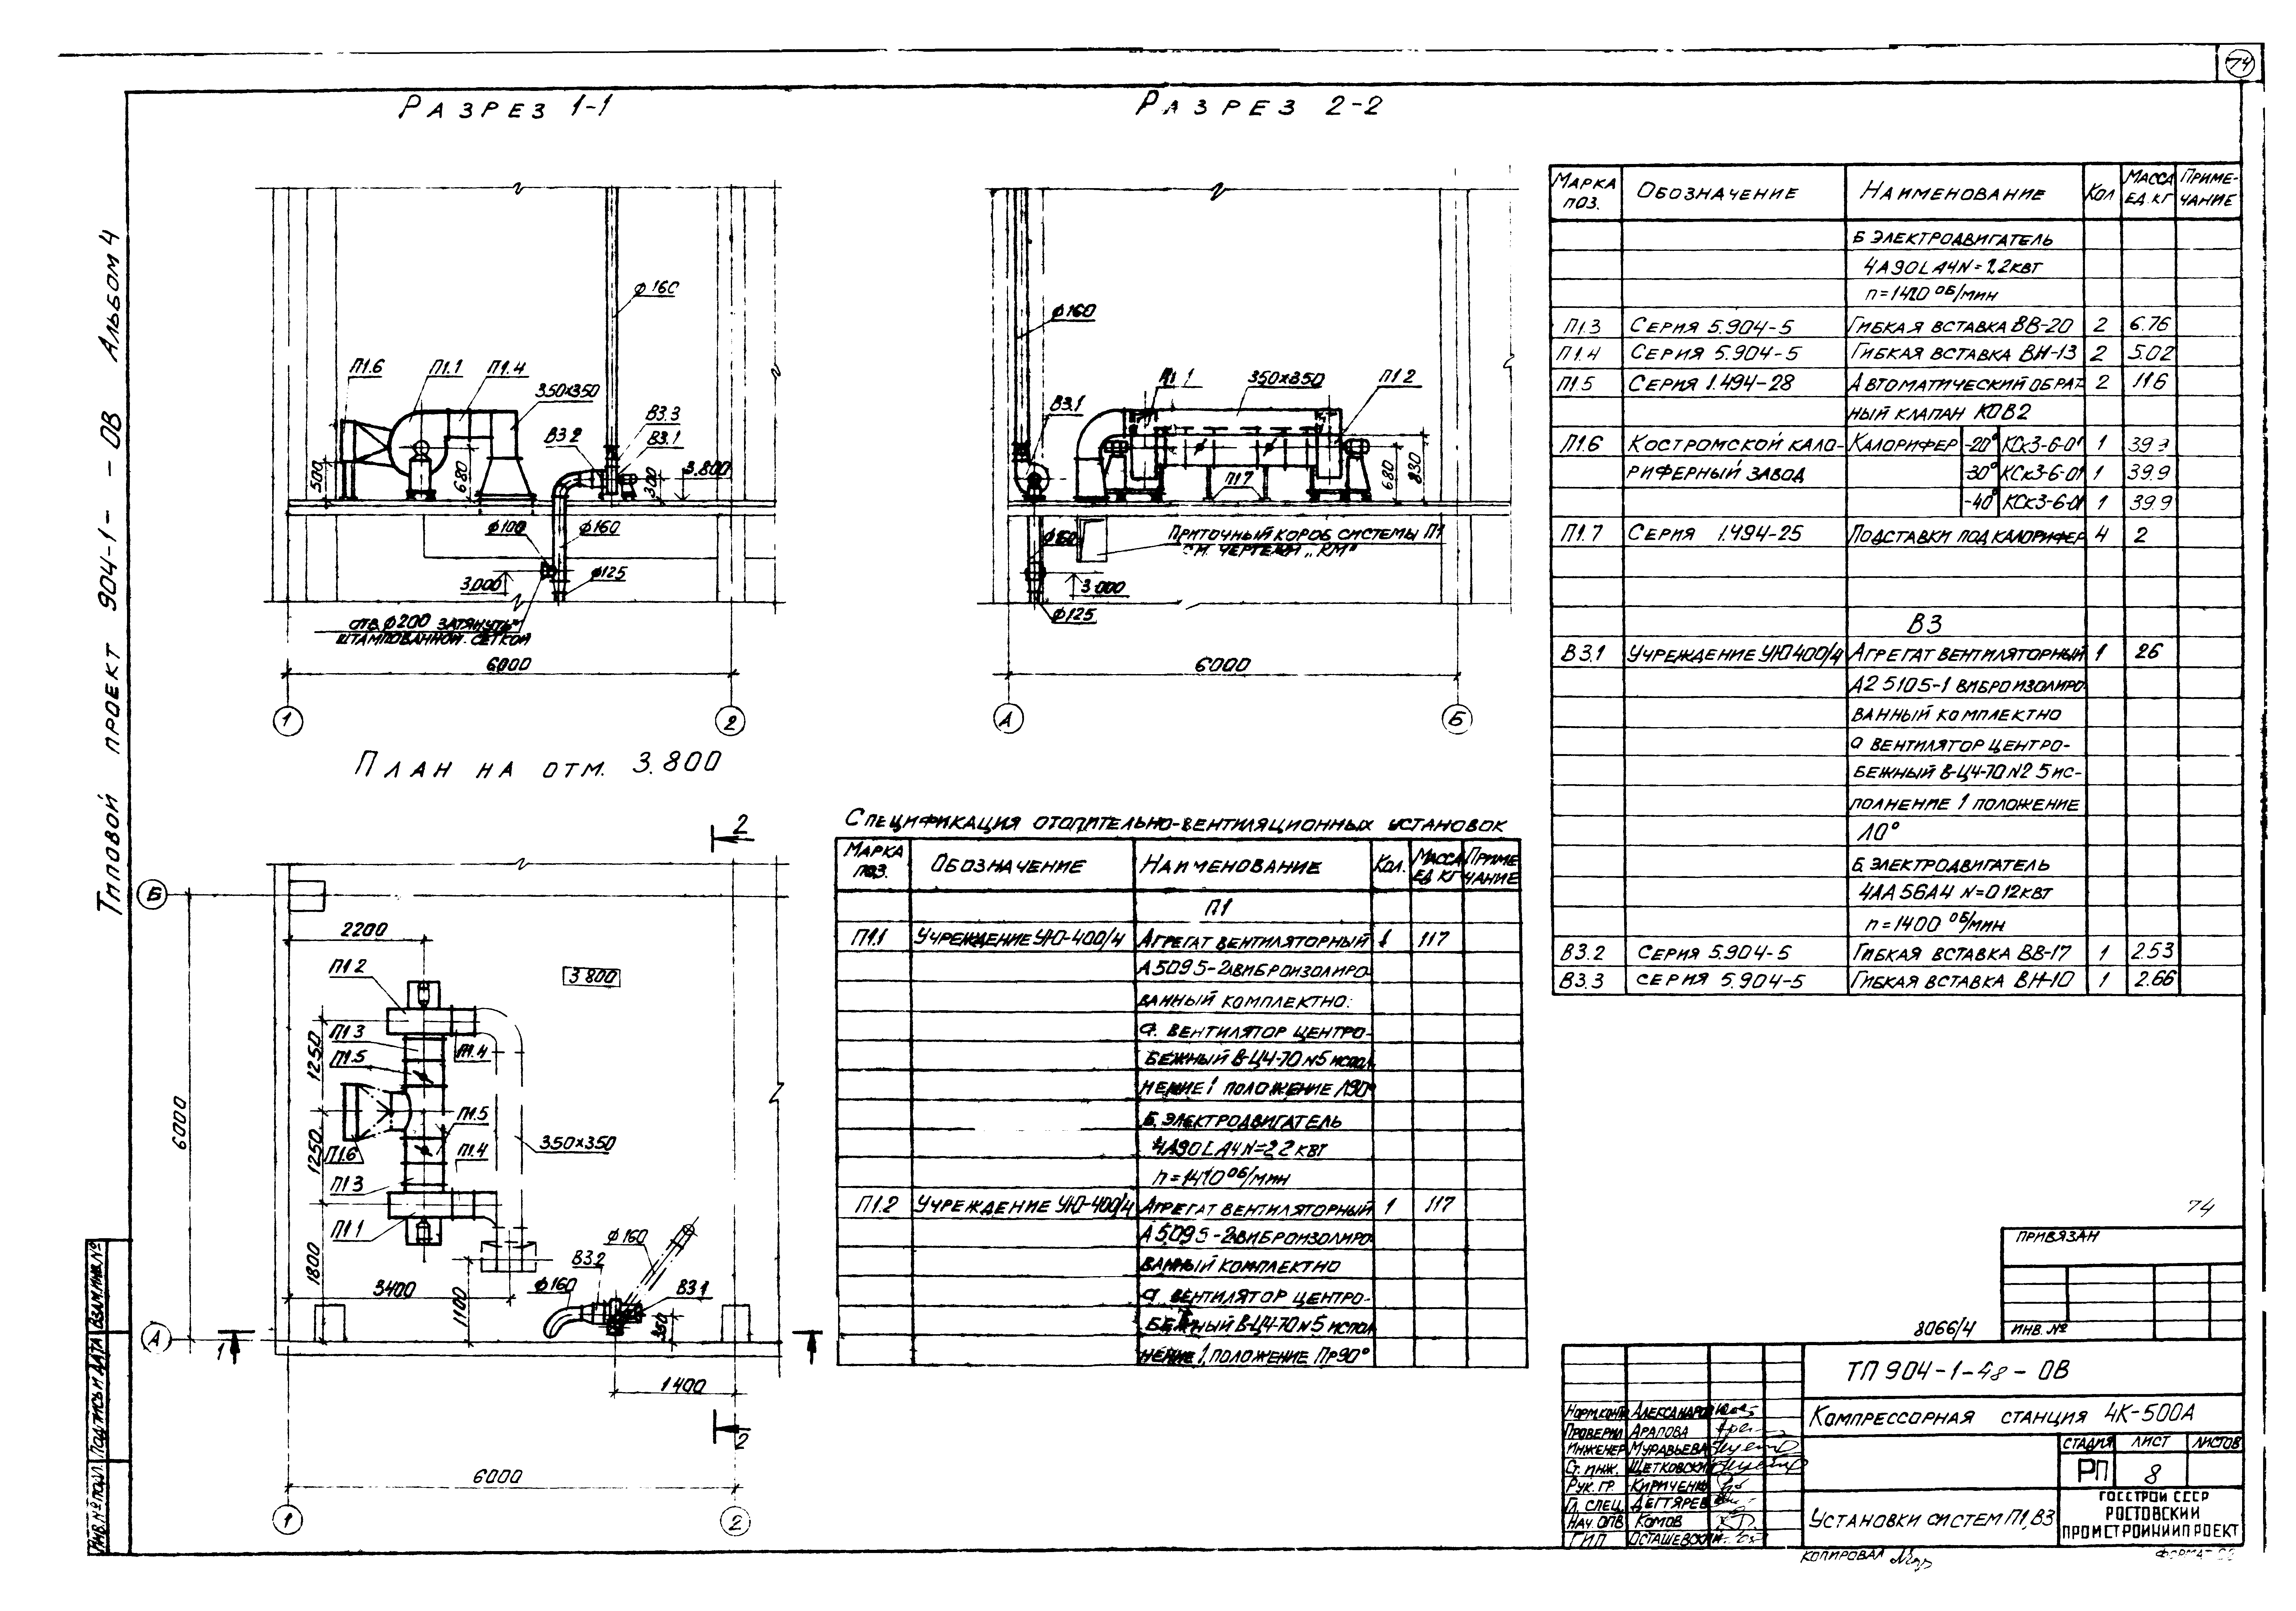 74
Типовой проект 904-1- -ОВ Альбом 4
Разрез 1-1
П1.6
П1.1
П1.4
350x350
ф160
В3.2
В3.3
В3.1
3.800
500
680
300
ф100
ф160
ф125
3.000
отв. ф200 затянуть
штампованной сеткой
6000
1
2
Разрез 2-2
ф160
В3.1
П1 1
350x350
П1 2
П1 7
680
830
Приточный короб системы П1
см. чертежи „КМ"
3.000
ф125
6000
А
Б
План на отм. 3.800
2
Б
2200
П1 2
3 800
П1 3
П1.5
П1.4
1250
6000
П1.5
350x350
П1.6
П1.4
1250
П1 3
П1 1
1800
3400
1100
ф160
В3.2
ф160
В3.1
350
А
1
1400
2
6000
1
2
Спецификация отопительно-вентиляционных установок
Марка поз. Обозначение Наименование Кол. Масса ед кг Примечание
П1
П1.1 Учреждение УЮ-400/4 Агрегат вентиляторный 1 117
А5095-2 виброизолиро
ванный комплектно:
а. вентилятор центро-
бежный В-Ц4-70 N5 испол
нение 1 положение Л90°
Б. электродвигатель
4А90LА4 N=2,2 квт
n=1420 об/мин
П1.2 Учреждение УЮ-400/4 Агрегат вентиляторный 1 117
А5095-2 виброизолиро
ванный комплектно
а. вентилятор центро-
бежный В-Ц4-70 N5 испол
нение 1, положение Пр90°
Марка поз. Обозначение Наименование Кол Масса ед. кг Примечание
Б электродвигатель
4А90LА4 N=2,2 квт
n=1420 об/мин
П1.3 Серия 5.904-5 Гибкая вставка ВВ-20 2 6.76
П1.4 Серия 5.904-5 Гибкая вставка ВН-13 2 5.02
П1.5 Серия 1.494-28 Автоматический обрат 2 11.6
ный клапан КОВ2
П1.6 Костромской кало- Калорифер -20° КСк3-6-01 1 39.9
риферный завод -30° КСк3-6-01 1 39.9
-40° КСк3-6-01 1 39.9
П1.7 Серия 1.494-25 Подставки под калорифер 4 2
В3
В3.1 Учреждение УЮ400/4 Агрегат вентиляторный 1 26
А2 5105-1 виброизолиро
ванный комплектно
а вентилятор центро-
бежный В-Ц4-70 N2 5 ис-
полнение 1 положение
Л0°
Б. электродвигатель
4АА56А4 N=0.12квт
n=1400 об/мин
В3.2 Серия 5.904-5 Гибкая вставка ВВ-17 1 2.53
В3.3 Серия 5.904-5 Гибкая вставка ВН-10 1 2.66
74
Привязан
8066/4
Инв. №
ТП 904-1-48-ОВ
Компрессорная станция 4К-500А
Норм.контр Александров
Проверил Арапова
Инженер Муравьева
Ст. инж. Щетковски
Рук. гр. Кириченко
Гл. спец. Дегтярев
Нач. ОПВ Комов
ГИП Осташевский
Стадия Лист Листов
РП 8
Установки систем П1, В3
Госстрой СССР
Ростовский
Промстройниипроект
Копировал
Формат
Инв. № подл. Подпись и дата Взам. инв. №